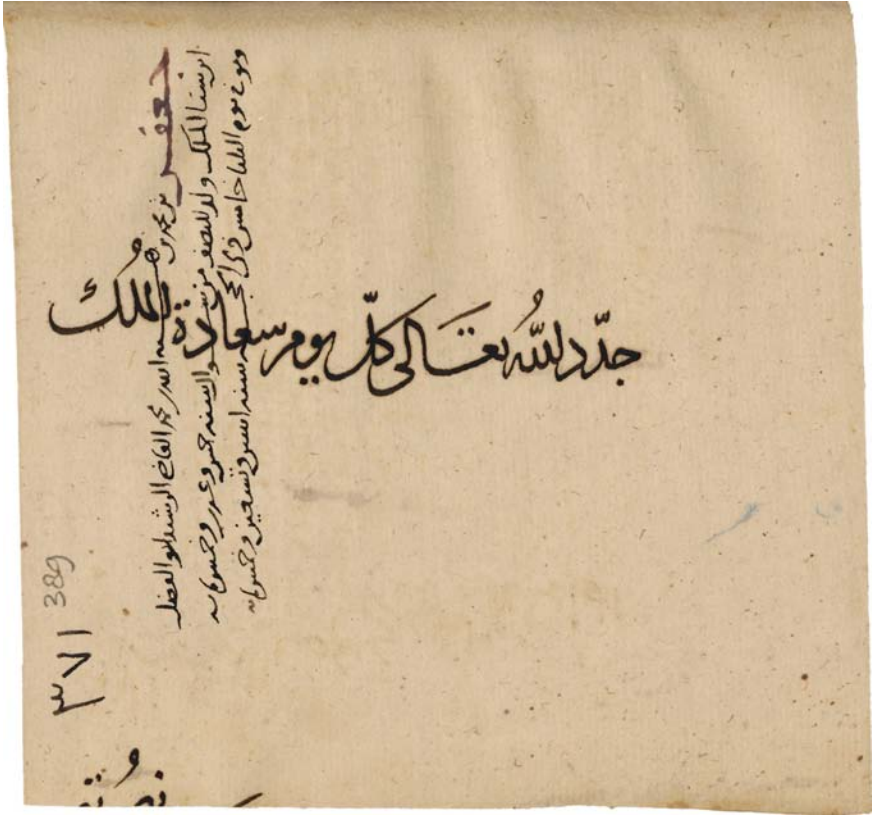 جدّد الله تعالى كلّ يوم سعادة الملك
جعفر بن محمد بن هبة الله بن محمد القاضي الرشيد أبو الفضل
ابن سنا الملك ولد للنصف من شوال سنة خمس وعشرين وخمسمائة
وتوفي يوم الثلثا خامس ذي الحجة سنة اثنين وتسعين وخمسمائة
389
٣٧١